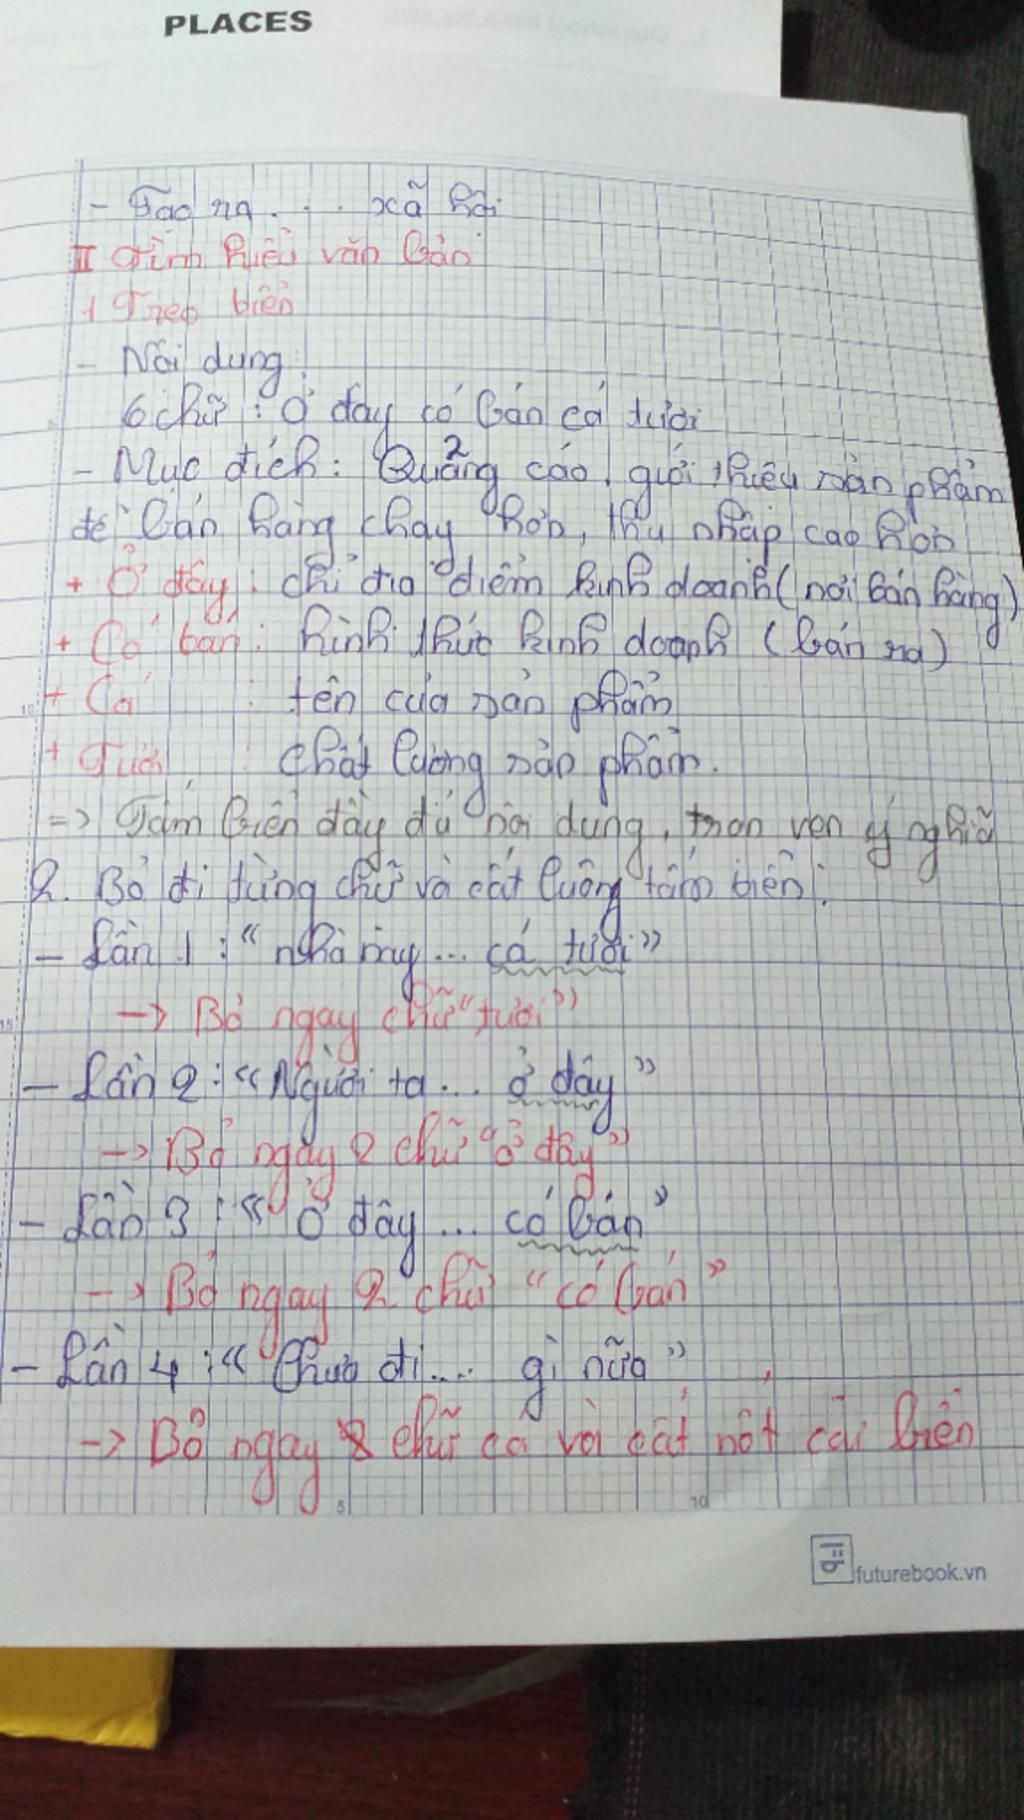 PLACES
- Tạo ra . . . xã hội
II Tìm hiểu văn bản
1 Treo biển
- Nội dung:
6 chữ : Ở đây có bán cá tươi
- Mục đích: Quảng cáo, giới thiệu sản phẩm
để bán hàng chạy hơn, thu nhập cao hơn
+ Ở đây : chỉ địa điểm kinh doanh (nơi bán hàng)
+ Có bán : hình thức kinh doanh (bán ra)
+ Cá : tên của sản phẩm
+ Tươi : chất lượng sản phẩm.
=> Tấm biển đầy đủ nội dung, trọn vẹn ý nghĩa
2. Bỏ đi từng chữ và cất luông tấm biển:
- Lần 1 : "nhà này... cá tươi"
-> Bỏ ngay chữ "tươi"
- Lần 2 : "Người ta... ở đây"
-> Bỏ ngay 2 chữ "ở đây"
- Lần 3 : "Ở đây ... có bán"
-> Bỏ ngay 2 chữ "có bán"
- Lần 4 : "Chưa đi.... gì nữa"
-> Bỏ ngay chữ cá và cất nốt cái biển
5
10
15
5
10
futurebook.vn